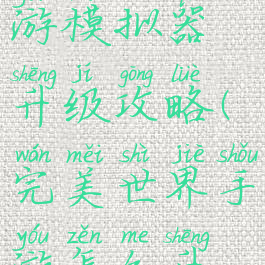 游模拟器
shēng jí gōng lüè
升级攻略(
wán měi shì jiè shǒu
完美世界手
yóu zěn me shēng
游怎么升